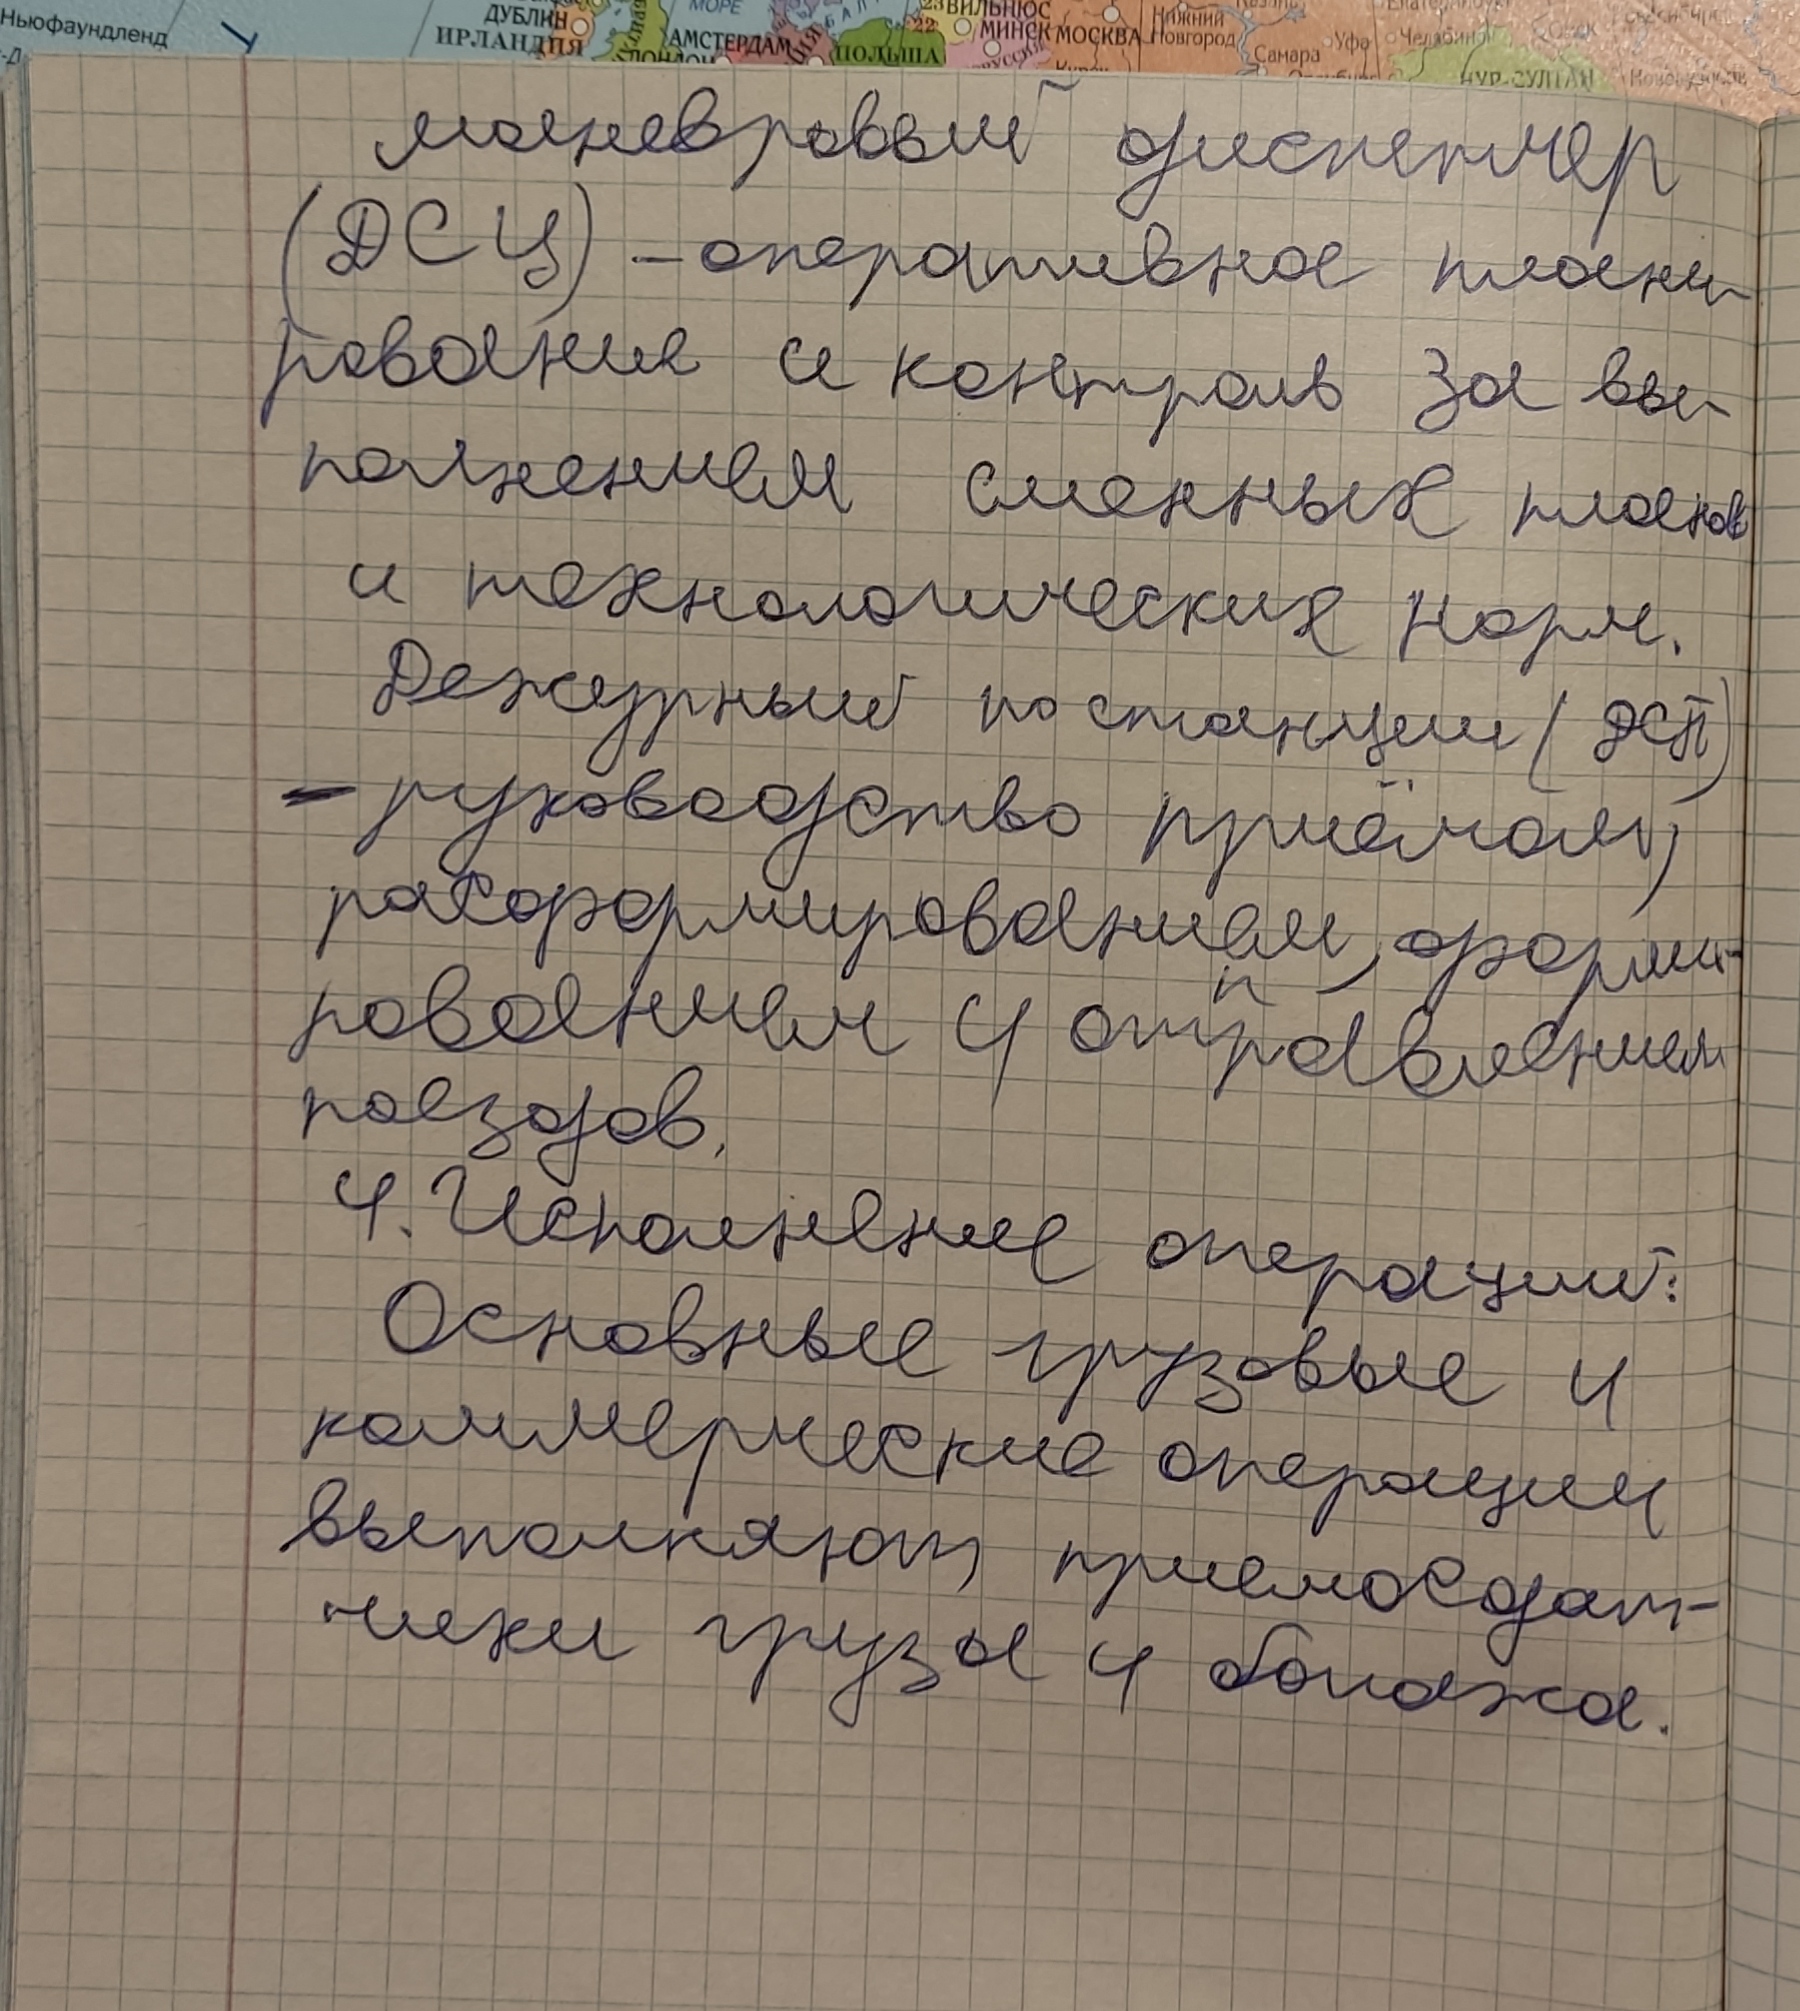 Ньюфаундленд
ДУБЛИН
ИРЛАНДИЯ
МОРЕ
АМСТЕРДАМ
ЛОНДОН
ПОЛЬША
23 ВИЛЬНЮС
22
МИНСК
МОСКВА
Нижний
Новгород
Казань
Самара
Уфа
Челябинск
Омск
НУР-СУЛТАН
Новокузнецк
маневровый диспетчер
(ДСЦ) – оперативное плани-
рование и контроль за вы-
полнением сменных планов
и технологических норм.
Дежурный по станции (ДСП)
– руководство приёмом,
расформированием, форми-
рованием и отправлением
поездов.
4. Исполнение операций:
Основные грузовые и
коммерческие операции
выполняют приемосдат-
чики груза и богажа.